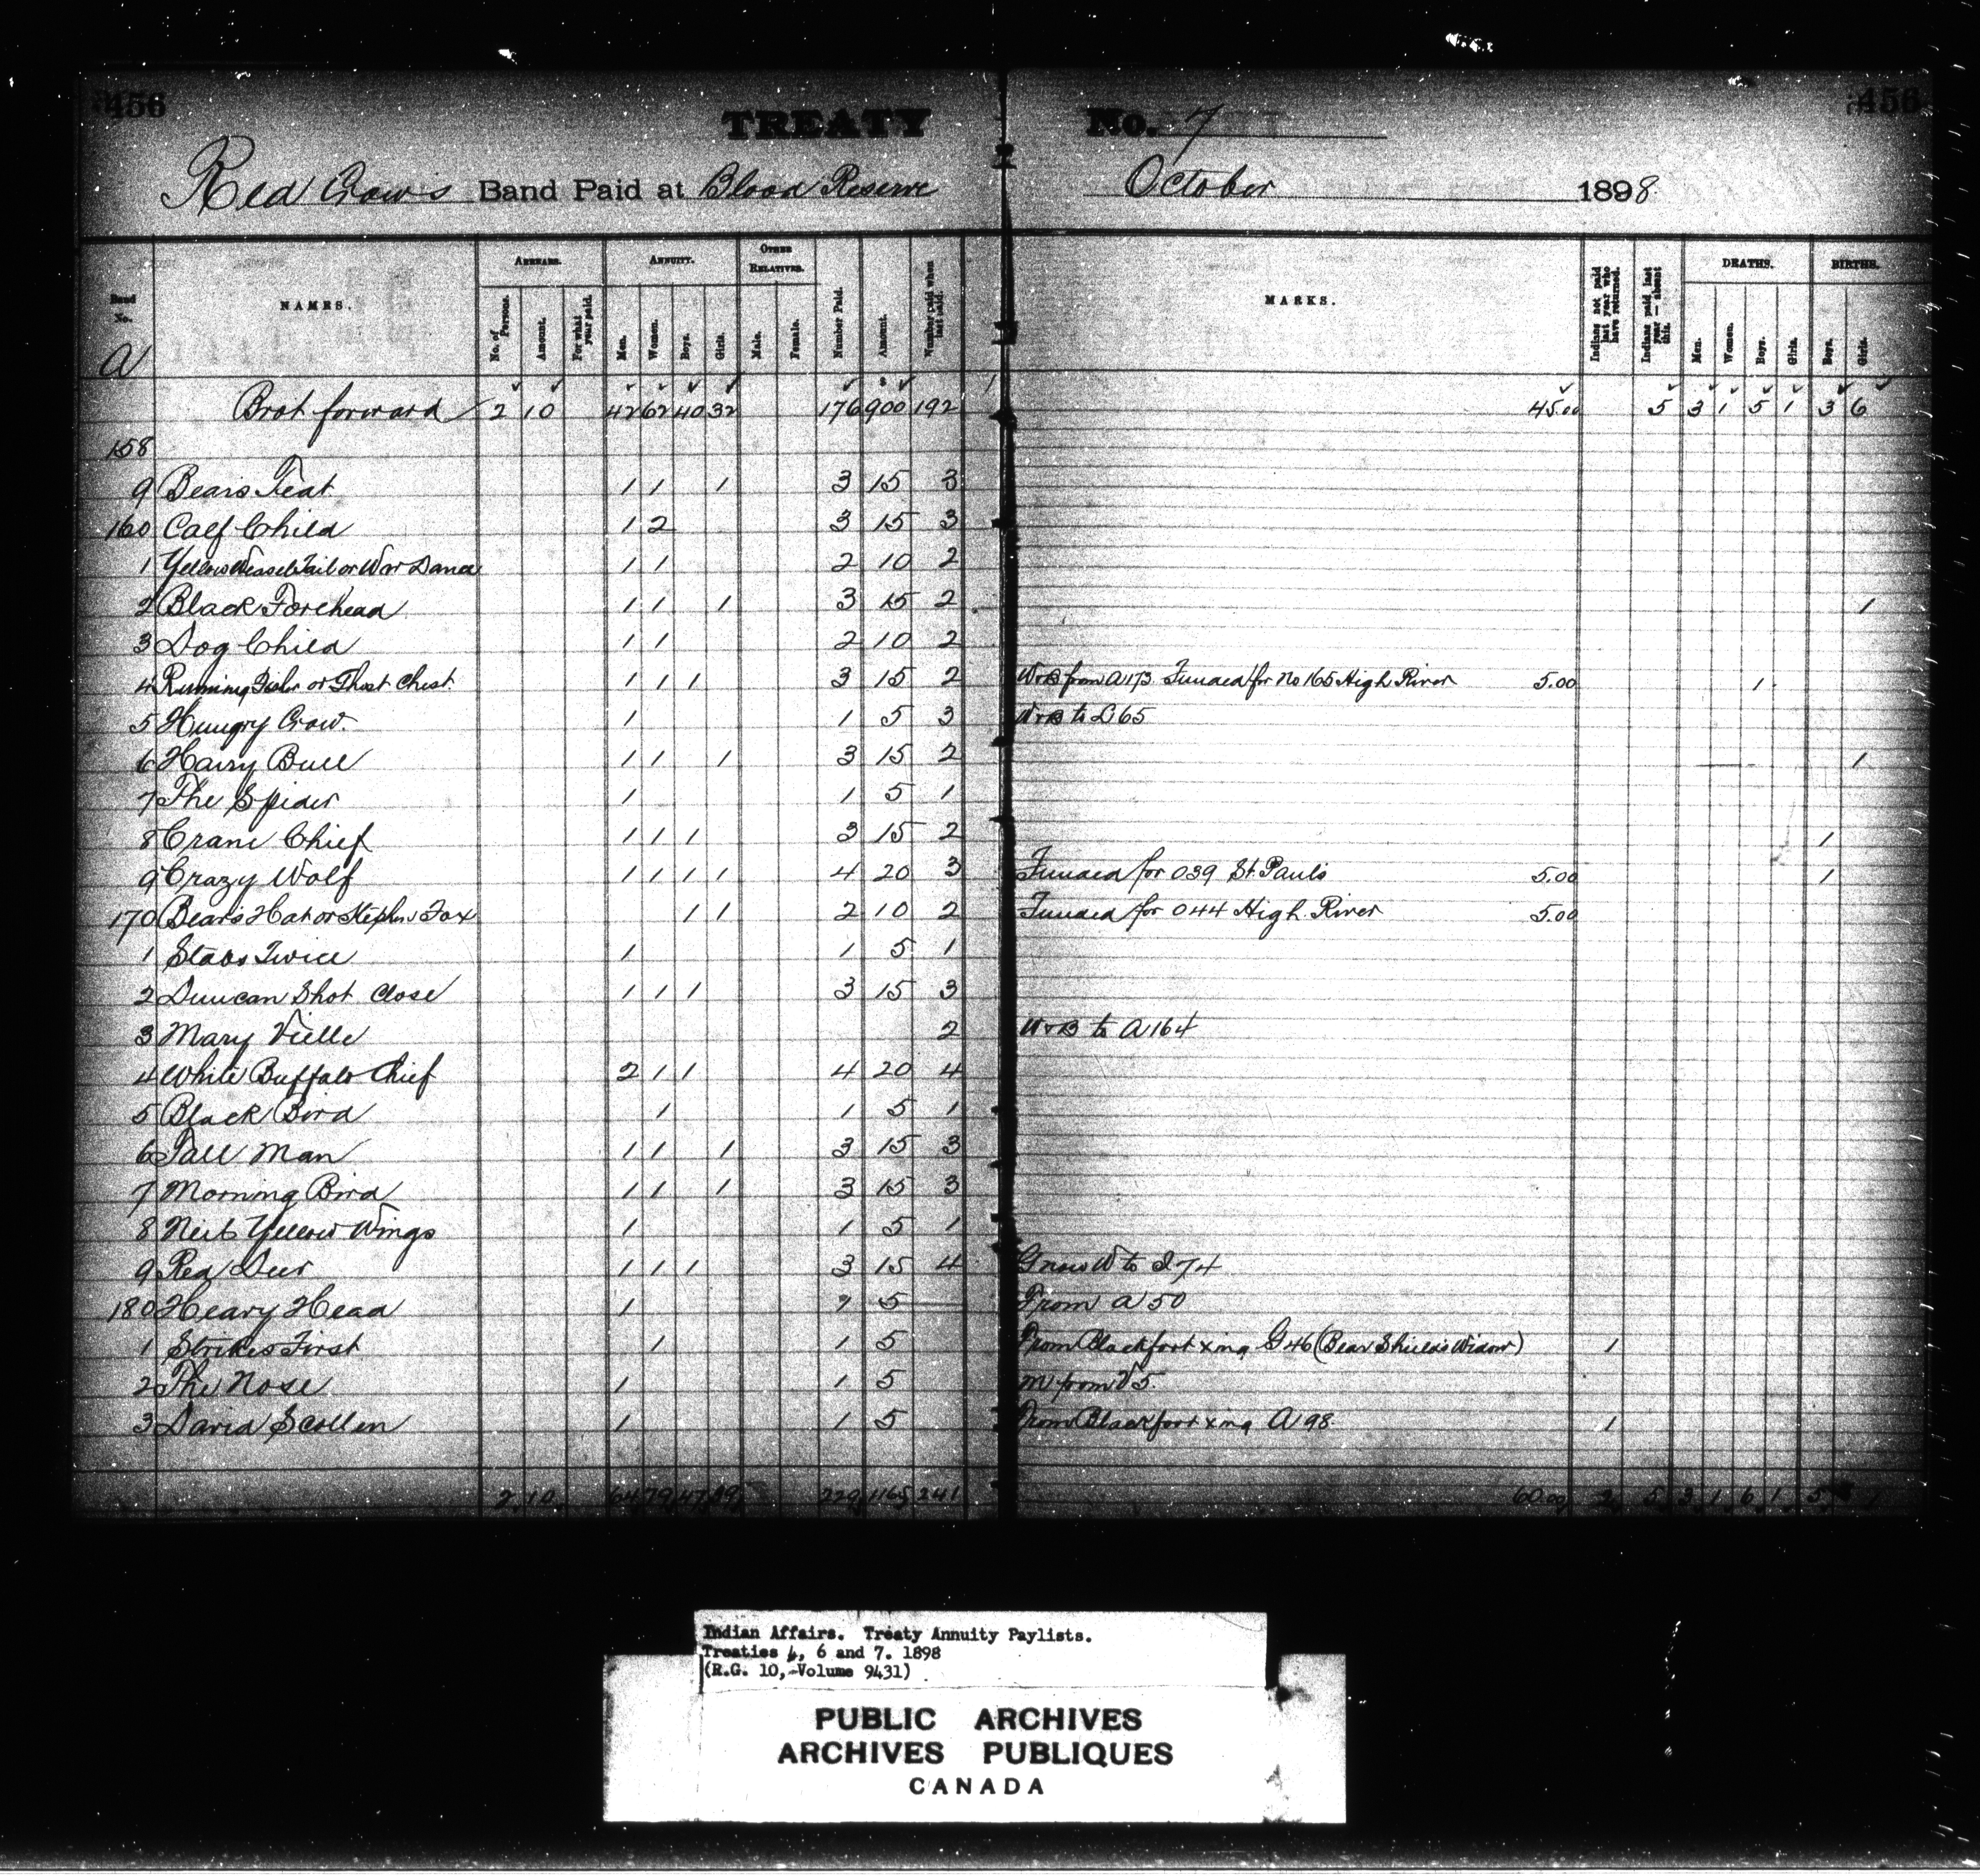 456 TREATY No. 7 456
Red Crow's Band Paid at Blood Reserve October 1898
Band No. NAMES. ARREARS. ANNUITY. OTHER RELATIVES. Number Paid. Amount. Number paid when last paid. MARKS. Indians not paid last year who have returned. Indians paid last year — absent this. DEATHS. BIRTHS.
No. of Persons. Amount. For what year paid. Men. Women. Boys. Girls. Male. Female. Men. Women. Boys. Girls. Boys. Girls.
A
Brot forward 2 10 42 62 40 32 176 900 192 45.00 5 3 1 5 1 3 6
158
9 Bears Teat 1 1 1 3 15 3
160 Calf Child 1 2 3 15 3
1 Yellow Weasel Tail or War Dance 1 1 2 10 2
2 Black Forehead 1 1 1 3 15 2 1
3 Dog Child 1 1 2 10 2
4 Running Fisher or Ghost Chest 1 1 1 3 15 2 W+B from A173 Funded for No 165 High River 5.00 1
5 Hungry Crow. 1 1 5 3 W+B to L65
6 Hairy Bull 1 1 1 3 15 2 1
7 The Spider 1 1 5 1
8 Crane Chief 1 1 1 3 15 2 1
9 Crazy Wolf 1 1 1 1 4 20 3 Funded for 039 St. Pauls 5.00 1
170 Bear's Hat or Stephen Fox 1 1 2 10 2 Funded for 044 High River 5.00
1 Stabs Twice 1 1 5 1
2 Duncan Shot Close 1 1 1 3 15 3
3 Mary Vielle 2 W+B to A164
4 White Buffalo Chief 2 1 1 4 20 4
5 Black Bird 1 1 5 1
6 Tall Man 1 1 1 3 15 3
7 Morning Bird 1 1 1 3 15 3
8 Yellow Wings 1 1 5 1
9 Red Deer 1 1 1 3 15 4 G now W to I74
180 Heavy Head 1 1 5 — From A 50
1 Strikes First 1 1 5 From Blackfoot xing G46 (Bear Shield's Widow) 1
2 The Nose 1 1 5 M from 5.
3 David Scollen 1 1 5 From Blackfoot xing A 98. 1
2 10 64 79 47 39 229 1165 241 60.00 2 5 3 1 6 1 5
Indian Affairs. Treaty Annuity Paylists.
Treaties 4, 6 and 7. 1898
(R.G. 10, Volume 9431)
PUBLIC ARCHIVES
ARCHIVES PUBLIQUES
CANADA